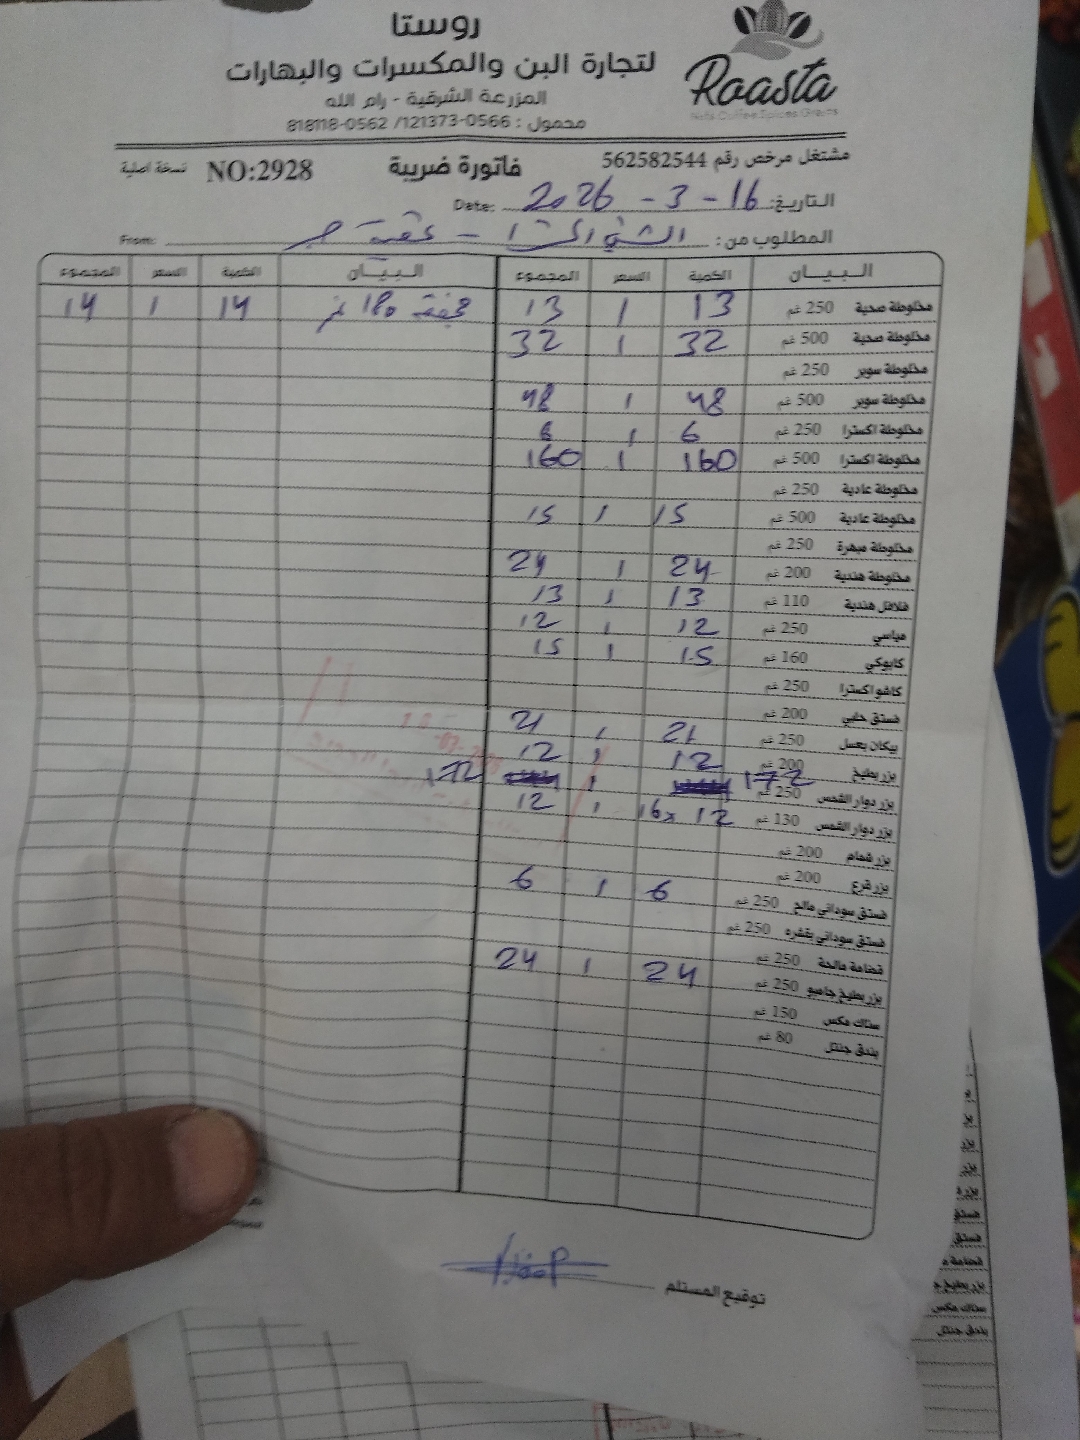 روستا
لتجارة البن والمكسرات والبهارات
المزرعة الشرقية - رام الله
محمول : 0566-121373/ 0562-818118
Roasta
Nuts Coffee Spices Grains
مشتغل مرخص رقم 562582544 فاتورة ضريبة NO:2928 نسخة اصلية
التاريخ: 16 - 3 - 2026 Date:
المطلوب من: From:
البيـــان الكمية السعر المجموع البيـــان الكمية السعر المجموع
مخلوطة صحية 250 غم 13 1 13 14 1 14
مخلوطة صحية 500 غم 32 1 32
مخلوطة سوبر 250 غم
مخلوطة سوبر 500 غم 48 1 48
مخلوطة اكسترا 250 غم 6 1 6
مخلوطة اكسترا 500 غم 160 1 160
مخلوطة عادية 250 غم
مخلوطة عادية 500 غم 15 1 15
مخلوطة مبهرة 250 غم
مخلوطة هندية 200 غم 24 1 24
فلافل هندية 110 غم 13 1 13
مياسي 250 غم 12 1 12
كابوكي 160 غم 15 1 15
كاشو اكسترا 250 غم
فستق حلبي 200 غم
بيكان بعسل 250 غم 21 1 21
بزر بطيخ 200 غم 12 1 12
بزر دوار الشمس 250 غم 172 1 172
بزر دوار الشمس 130 غم 12 x16 1 12
بزر شمام 200 غم
بزر قرع 200 غم
فستق سوداني مالح 250 غم 6 1 6
فستق سوداني بقشره 250 غم
قضامة مالحة 250 غم
بزر بطيخ جامبو 250 غم 24 1 24
سناك مكس 150 غم
بندق جنتل 80 غم
توقيع المستلم